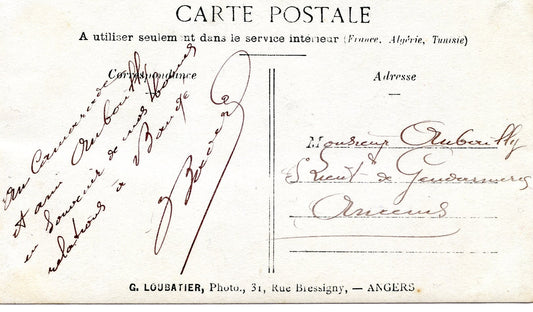 CARTE POSTALE
A utiliser seulement dans le service intérieur (France, Algérie, Tunisie)
Correspondance
Adresse
Au Camarade
et ami Aubouilly
en souvenir de nos bonnes
relations à Baugé
Monsieur Aubouilly
S/Lieut de Gendarmerie
Ancenis
G. LOUBATIER, Photo., 31, Rue Bressigny, — ANGERS